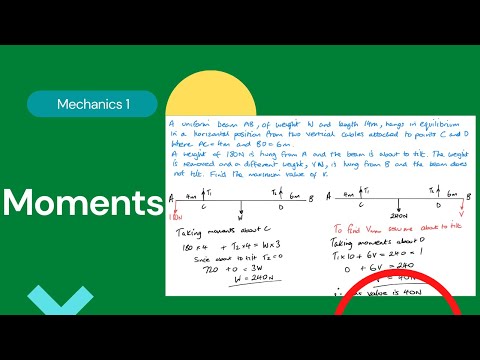 Mechanics 1
Moments
A uniform beam AB, of weight W and length 14m, hangs in equilibrium
in a horizontal position from two vertical cables attached to points C and D
where AC = 4m and BD = 6m.
A weight of 180N is hung from A and the beam is about to tilt. The weight
is removed and a different weight, VN, is hung from B and the beam does
not tilt. Find the maximum value of V.
A 4m T1 T2 6m B
C D
180N W
Taking moments about C
180 x 4 + T2 x 4 = W x 3
Since about to tilt T2 = 0
720 + 0 = 3W
W = 240N
A 4m T1 T2 6m B
C D
240N V
To find Vmax assume about to tilt
Taking moments about D
T1 x 10 + 6V = 240 x 1
0 + 6V = 240
= 40N
value is 40N